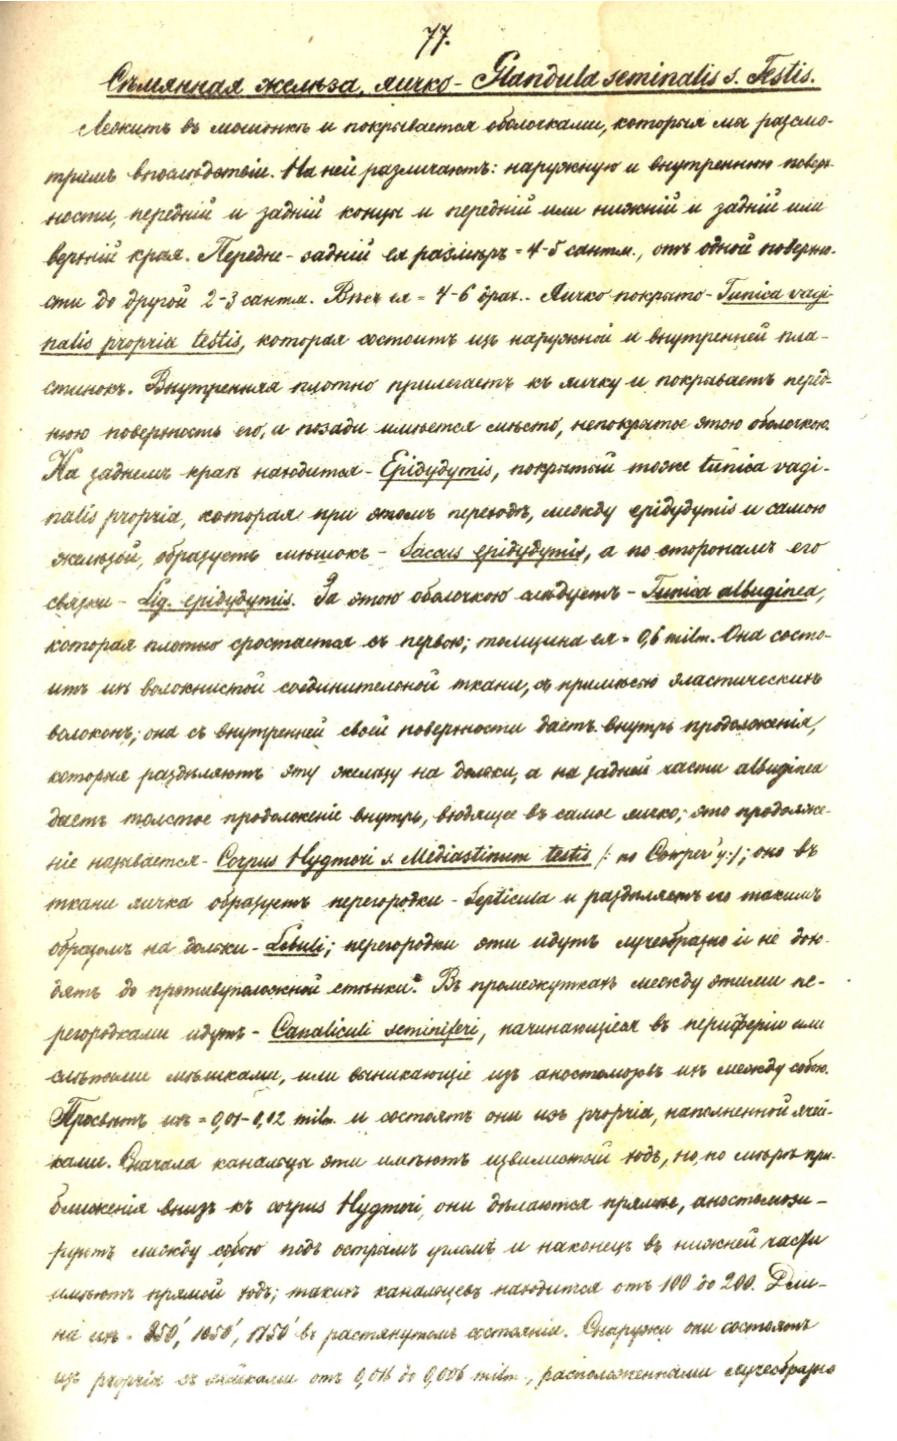 77.
Сѣмянная желѣза, яичко - Glandula seminalis s. Testis.
Лежитъ въ мошонкѣ и покрывается оболочками, которыя мы разсмо-
тримъ впослѣдствіи. На ней различаютъ: наружную и внутреннюю поверх-
ности, передній и задній концы и передній или нижній и задній или
верхній края. Передне-задній ея размѣръ = 4-5 сантм., отъ одной поверхно-
сти до другой 2-3 сантм. Вѣсъ ея = 4-6 драх.. Яичко покрыто - Tunica vagi-
nalis propria testis, которая состоитъ изъ наружной и внутренней пла-
стинокъ. Внутренняя плотно прилегаетъ къ яичку и покрываетъ перед-
нюю поверхность его, а позади имѣется мѣсто, непокрытое этою оболочкою.
На заднемъ краѣ находится - Epidydymis, покрытый тоже tunica vagi-
nalis propria, которая при этомъ переходѣ, между epidydymis и самою
желѣзой, образуетъ мѣшокъ - Saccus epidydymis, а по сторонамъ его
связки - Lig. epidydymis. За этою оболочкою слѣдуетъ - Tunica albuginea,
которая плотно сростается съ первою; толщина ея = 0,6 milm. Она состо-
итъ изъ волокнистой соединительной ткани, съ примѣсью эластическихъ
волоконъ; она съ внутренней своей поверхности даетъ внутрь продолженія,
которыя раздѣляютъ эту железу на дольки, а на задней части albuginea
даетъ толстое продолженіе внутрь, входящее въ самое яичко; это продолже-
ніе называется - Corpus Hygmori s. Mediastinum testis /: по Cowper'у:/; оно въ
ткани яичка образуетъ перегородки - Septicula и раздѣляетъ его такимъ
образомъ на дольки - Lobuli; перегородки эти идутъ лучеобразно и не дохо-
дятъ до противуположной стѣнки. Въ промежуткахъ между этими пе-
регородками идутъ - Canaliculi seminiferi, начинающіеся въ периферіи или
слѣпыми мѣшками, или возникающіе изъ анастомозовъ ихъ между собою.
Просвѣтъ ихъ = 0,01-0,12 milm и состоятъ они изъ propria, наполненной ячей-
ками. Сначала канальцы эти имѣютъ извилистой ходъ, но, по мѣрѣ при-
ближенія внизъ къ corpus Hygmori, они дѣлаются прямѣе, анастомози-
руютъ между собою подъ острымъ угломъ и наконецъ въ нижней части
имѣютъ прямой ходъ; такихъ канальцевъ находится отъ 100 до 200. Дли-
на ихъ = 850', 1050', 1750' въ растянутомъ состояніи. Снаружи они состоятъ
изъ propria съ ячейками отъ 0,016 до 0,006 milm, расположенными лучеобразно